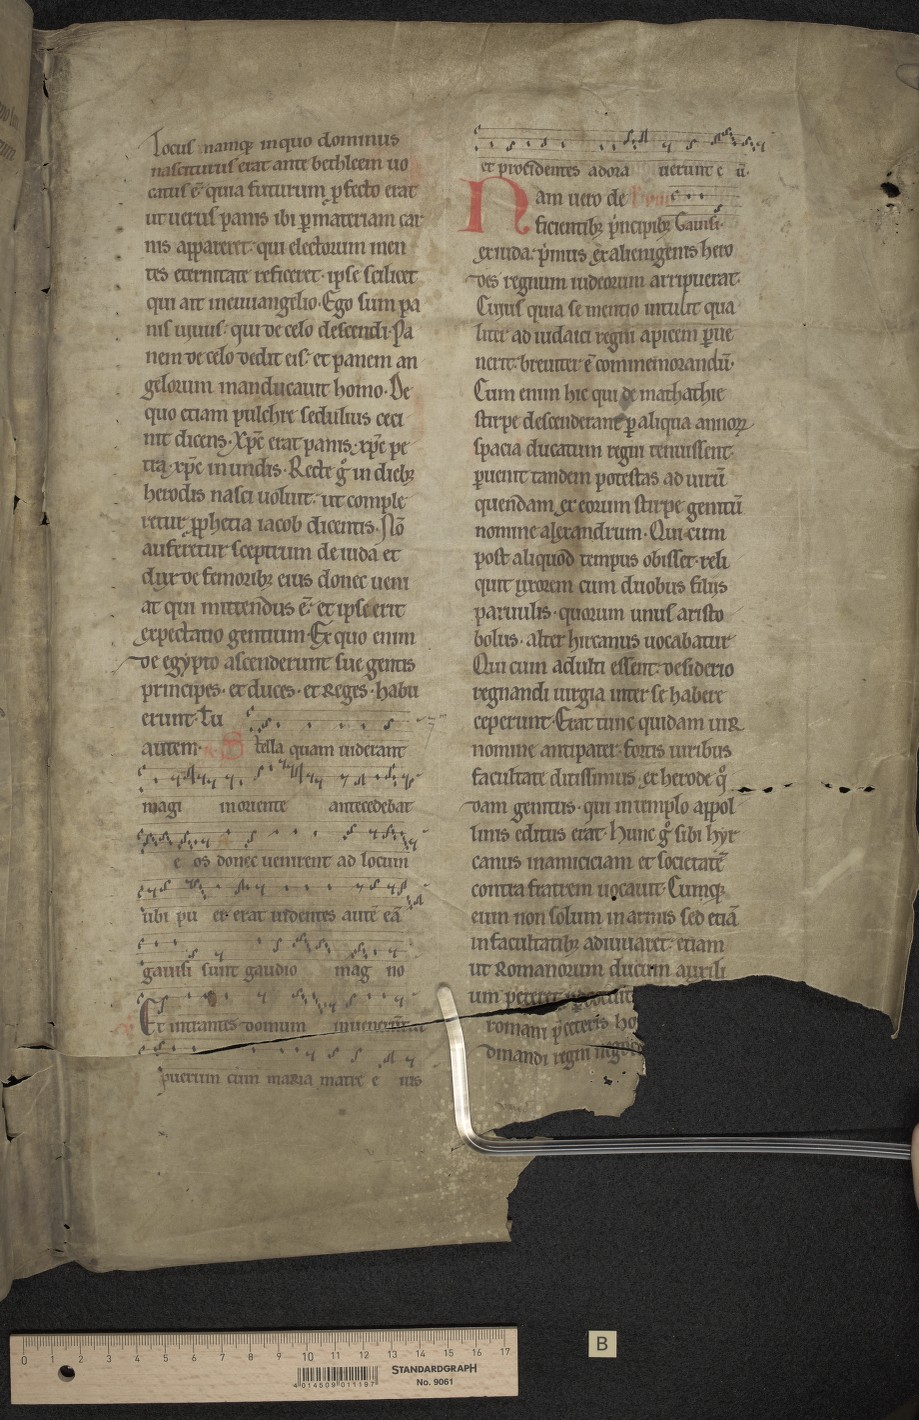 locus namq; in quo dominus
nasciturus erat ante bethleem uo
catus ē. quia futurum ꝓfecto erat
ut uerus panis ibi ꝑ materiam car
nis appareret. qui electorum men
tes eternitate reficeret. ipse scilicet
qui ait in euuangelio. Ego sum pa
nis uiuus. qui de celo descendi. Pa
nem de celo dedit eis. et panem an
gelorum manducauit homo. De
quo etiam pulchre sedulius ceci
nit dicens. Xp̄c erat panis. xp̄c pe
tra. xp̄c in undis. Recte gͦ in dieb;
herodis nasci uoluit. ut comple
retur ꝓphetia iacob dicentis. Nō
auferetur sceptrum de iuda et
dux de femorib; eius donec ueni
at qui mittendus ē. et ipse erit
expectatio gentium. Ex quo enim
de egypto ascenderunt sue gentis
principes. et duces. et Reges. habu
erunt. Tu
autem. Stella quam uiderant
magi in oriente antecedebat
e os donec uenirent ad locum
ubi pu er erat uidentes autē eā
gauisi sunt gaudio mag no
Et intrantes domum inuenerunt
puerum cum maria matre e ius
et procidentes adora uerunt e ū.
Nam uero de
ficientib; pͥncipib; Gauisi.
ex iuda. pͥmus ex alienigenis hero
des regnum iudeorum arripuerat.
Cuius quia se mentio intulit qua
liter ad iudaici regni apicem ꝑue
nerit. breuiter ē commemorandū.
Cum enim hic qui de mathathie
stirpe descenderant ꝑ aliqua annoꝝ
spacia ducatum regni tenuissent.
ꝑuenit tandem potestas ad uirū
quendam ex eorum stirpe genitū
nomine alexandrum. Qui cum
post aliquod tempus obisset. reli
quit uxorem cum duobus filiis
paruulis. quorum unus aristo
bolus. alter hircanus uocabatur
Qui cum adulti essent. desiderio
regnandi iurgia inter se habere
ceperunt. Erat tunc quidam uir
nomine antipater. fortis uiribus
facultate ditissimus. ex herode qͦ
dam genitus. qui in templo appol
linis editus erat. Hunc gͦ sibi hyr
canus in amiciciam et societatē
contra fratrem uocauit. Cumq;
eum non solum in armis sed etiā
in facultatib; adiuuaret. etiam
ut Romanorum ducum auxili
um peteret
romani ꝑ ceteris ho
dinandi regni
STANDARDGRAPH
No. 9061
4 014509 011197
0 1 2 3 4 5 6 7 8 9 10 11 12 13 14 15 16 17
B